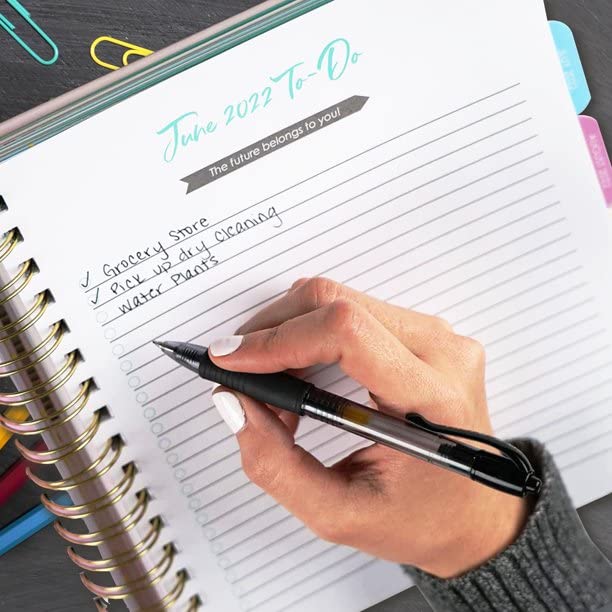 June 2022 To-Do
The future belongs to you!
✓ Grocery Store
✓ Pick up dry cleaning
Water Plants